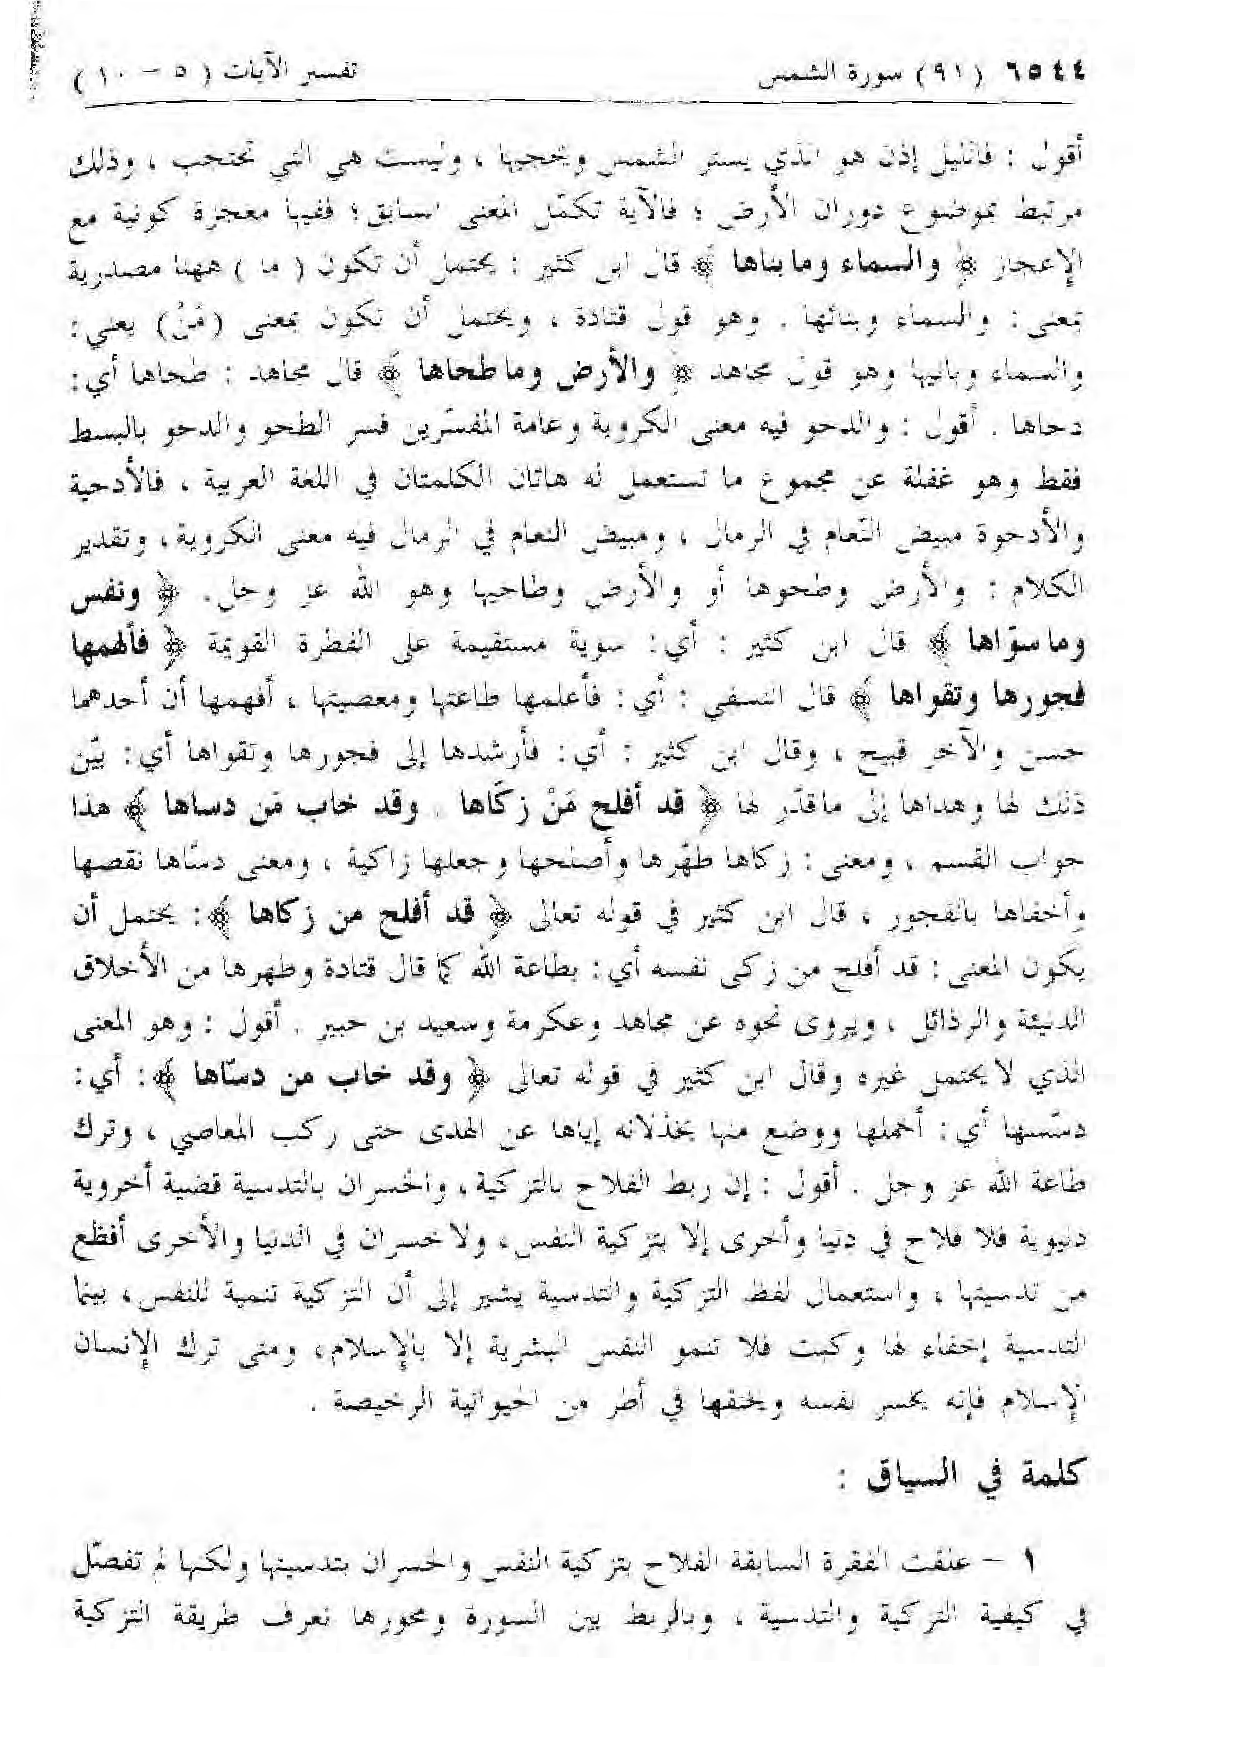 ٦٥٤٤ (٩١) سورة الشمس تفسير الآيات (٥ - ١٠)
أقول : فالليل إذن هو الذي يستر الشمس ويحجبها ، وليست هي التي تحتجب ، وذلك
مرتبط بموضوع دوران الأرض ؛ فالآية تكمّل المعنى السابق؛ ففيها معجزة كونية مع
الإعجاز ﴿ والسماء وما بناها ﴾ قال ابن كثير : يحتمل أن تكون ( ما ) ههنا مصدرية
بمعنى : والسماء وبنائها . وهو قول قتادة ، ويحتمل أن تكون بمعنى (مَنْ) يعني :
والسماء وبانيها وهو قول مجاهد ﴿ والأرض وما طحاها ﴾ قال مجاهد : طحاها أي :
دحاها . أقول : والدحو فيه معنى الكروية وعامة المفسّرين فسر الطحو والدحو بالبسط
فقط وهو غفلة عن مجموع ما تستعمل له هاتان الكلمتان في اللغة العربية ، فالأدحية
والأدحوة مبيض النّعام في الرمال ، ومبيض النعام في الرمال فيه معنى الكروية ، وتقدير
الكلام : والأرض وطحوها أو والأرض وطاحيها وهو الله عز وجل . ﴿ ونفس
وما سوّاها ﴾ قال ابن كثير : أي : سوية مستقيمة على الفطرة القويمة ﴿ فألهمها
فجورها وتقواها ﴾ قال النسفي : أي : فأعلمها طاعتها ومعصيتها ، أفهمها أن أحدهما
حسن والآخر قبيح ، وقال ابن كثير : أي : فأرشدها إلى فجورها وتقواها أي : بيّن
ذلك لها وهداها إلى ما قدّر لها ﴿ قد أفلح مَنْ زكّاها . وقد خاب مَن دساها ﴾ هذا
جواب القسم ، ومعنى : زكاها طهّرها وأصلحها وجعلها زاكية ، ومعنى دسّاها نقصها
وأخفاها بالفجور ، قال ابن كثير في قوله تعالى ﴿ قد أفلح من زكاها ﴾ : يحتمل أن
يكون المعنى : قد أفلح من زكى نفسه أي : بطاعة الله كما قال قتادة وطهرها من الأخلاق
الدنيئة والرذائل ، ويروى نحوه عن مجاهد وعكرمة وسعيد بن جبير . أقول : وهو المعنى
الذي لا يحتمل غيره وقال ابن كثير في قوله تعالى ﴿ وقد خاب من دسّاها ﴾ : أي :
دسّسها أي : أخملها ووضع منها بخذلانه إياها عن الهدى حتى ركب المعاصي ، وترك
طاعة الله عز وجل . أقول : إن ربط الفلاح بالتزكية ، والخسران بالتدسية قضية أخروية
دنيوية فلا فلاح في دنيا وأخرى إلا بتزكية النفس ، ولا خسران في الدنيا والأخرى أفظع
من تدسيتها ، واستعمال لفظ التزكية والتدسية يشير إلى أن التزكية تنمية للنفس ، بينما
التدسية إخفاء لها وكبت فلا تنمو النفس البشرية إلا بالإسلام ، ومتى ترك الإنسان
الإسلام فإنه يخسر نفسه ويخنقها في أطر من الحيوانية الرخيصة .
كلمة في السياق :
١ - علقت الفقرة السابقة الفلاح بتزكية النفس والخسران بتدسيتها ولكنها لم تفصّل
في كيفية التزكية والتدسية ، وبالربط بين السورة ومحورها نعرف طريقة التزكية